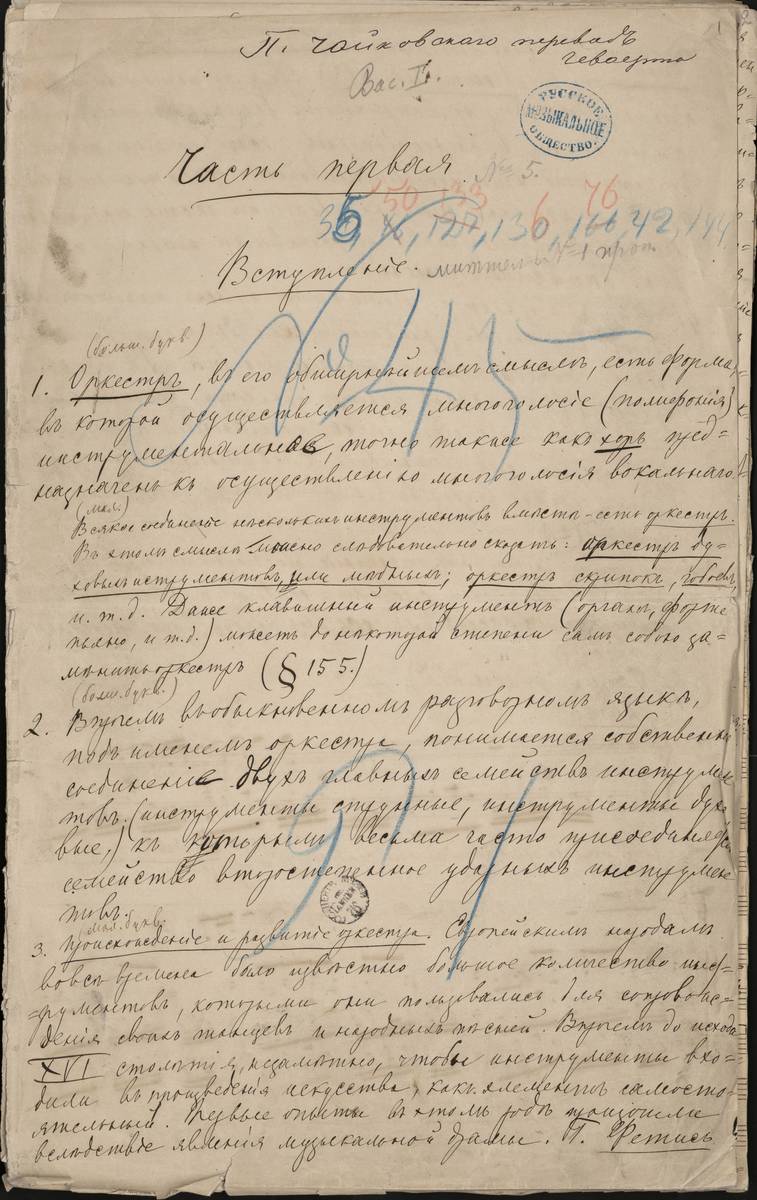 П. Чайковскаго переводъ
Геваерта
Вас. I.
РУССКОЕ
МУЗЫКАЛЬНОЕ
ОБЩЕСТВО.
Часть первая.
№ 5.
150 133 6 76
36, 16, 127, 130, 166, 42, 144
Вступленіе.
№ 1
(больш. букв.)
1. Оркестръ, въ его обширнѣйшемъ смыслѣ, есть форма,
въ которой осуществляется многоголосіе (полифонія)
инструментальное, точно также какъ хоръ пред=
назначенъ къ осуществленію многоголосія вокальнаго.
(мал.)
Всякое соединеніе несколькихъ инструментовъ вмѣстѣ – есть оркестръ.
Въ этомъ смыслѣ можно слѣдовательно сказать: оркестръ ду=
ховыхъ иструментовъ, или мѣдныхъ; оркестръ скрипокъ, гобоевъ,
и. т. д. Даже клавишный инструментъ (органъ, форте
пьяно, и т.д.) можетъ до некоторой степени самъ собою за=
мѣнить оркестръ (§ 155.)
(больш. букв.)
2. Впрочемъ въ обыкновенномъ разговорномъ языкѣ,
подъ именемъ оркестра, понимается собственно
соединеніе двухъ главныхъ семействъ инструмен
товъ. (инструменты струнные, инструменты духо
вые,) къ которымъ весьма часто присоединяется
семейство второстепенное ударныхъ инструмен
товъ.
(мал. букв.
3. Происхожденіе и развитіе оркестра. Европейскимъ народамъ
во все времена было извѣстно большое количество инст=
=рументовъ, которыми они пользовались для сопровож=
денія своихъ танцевъ и народныхъ пѣсней. Впрочемъ до исхода
XVI столѣтія, незамѣтно, чтобы инструменты вхо=
дили въ произведенія искусства, какъ элементъ самосто=
ятельный. Первые опыты въ этомъ родѣ произошли
вслѣдствіе явленія музыкальной драмы. Г. Фетисъ